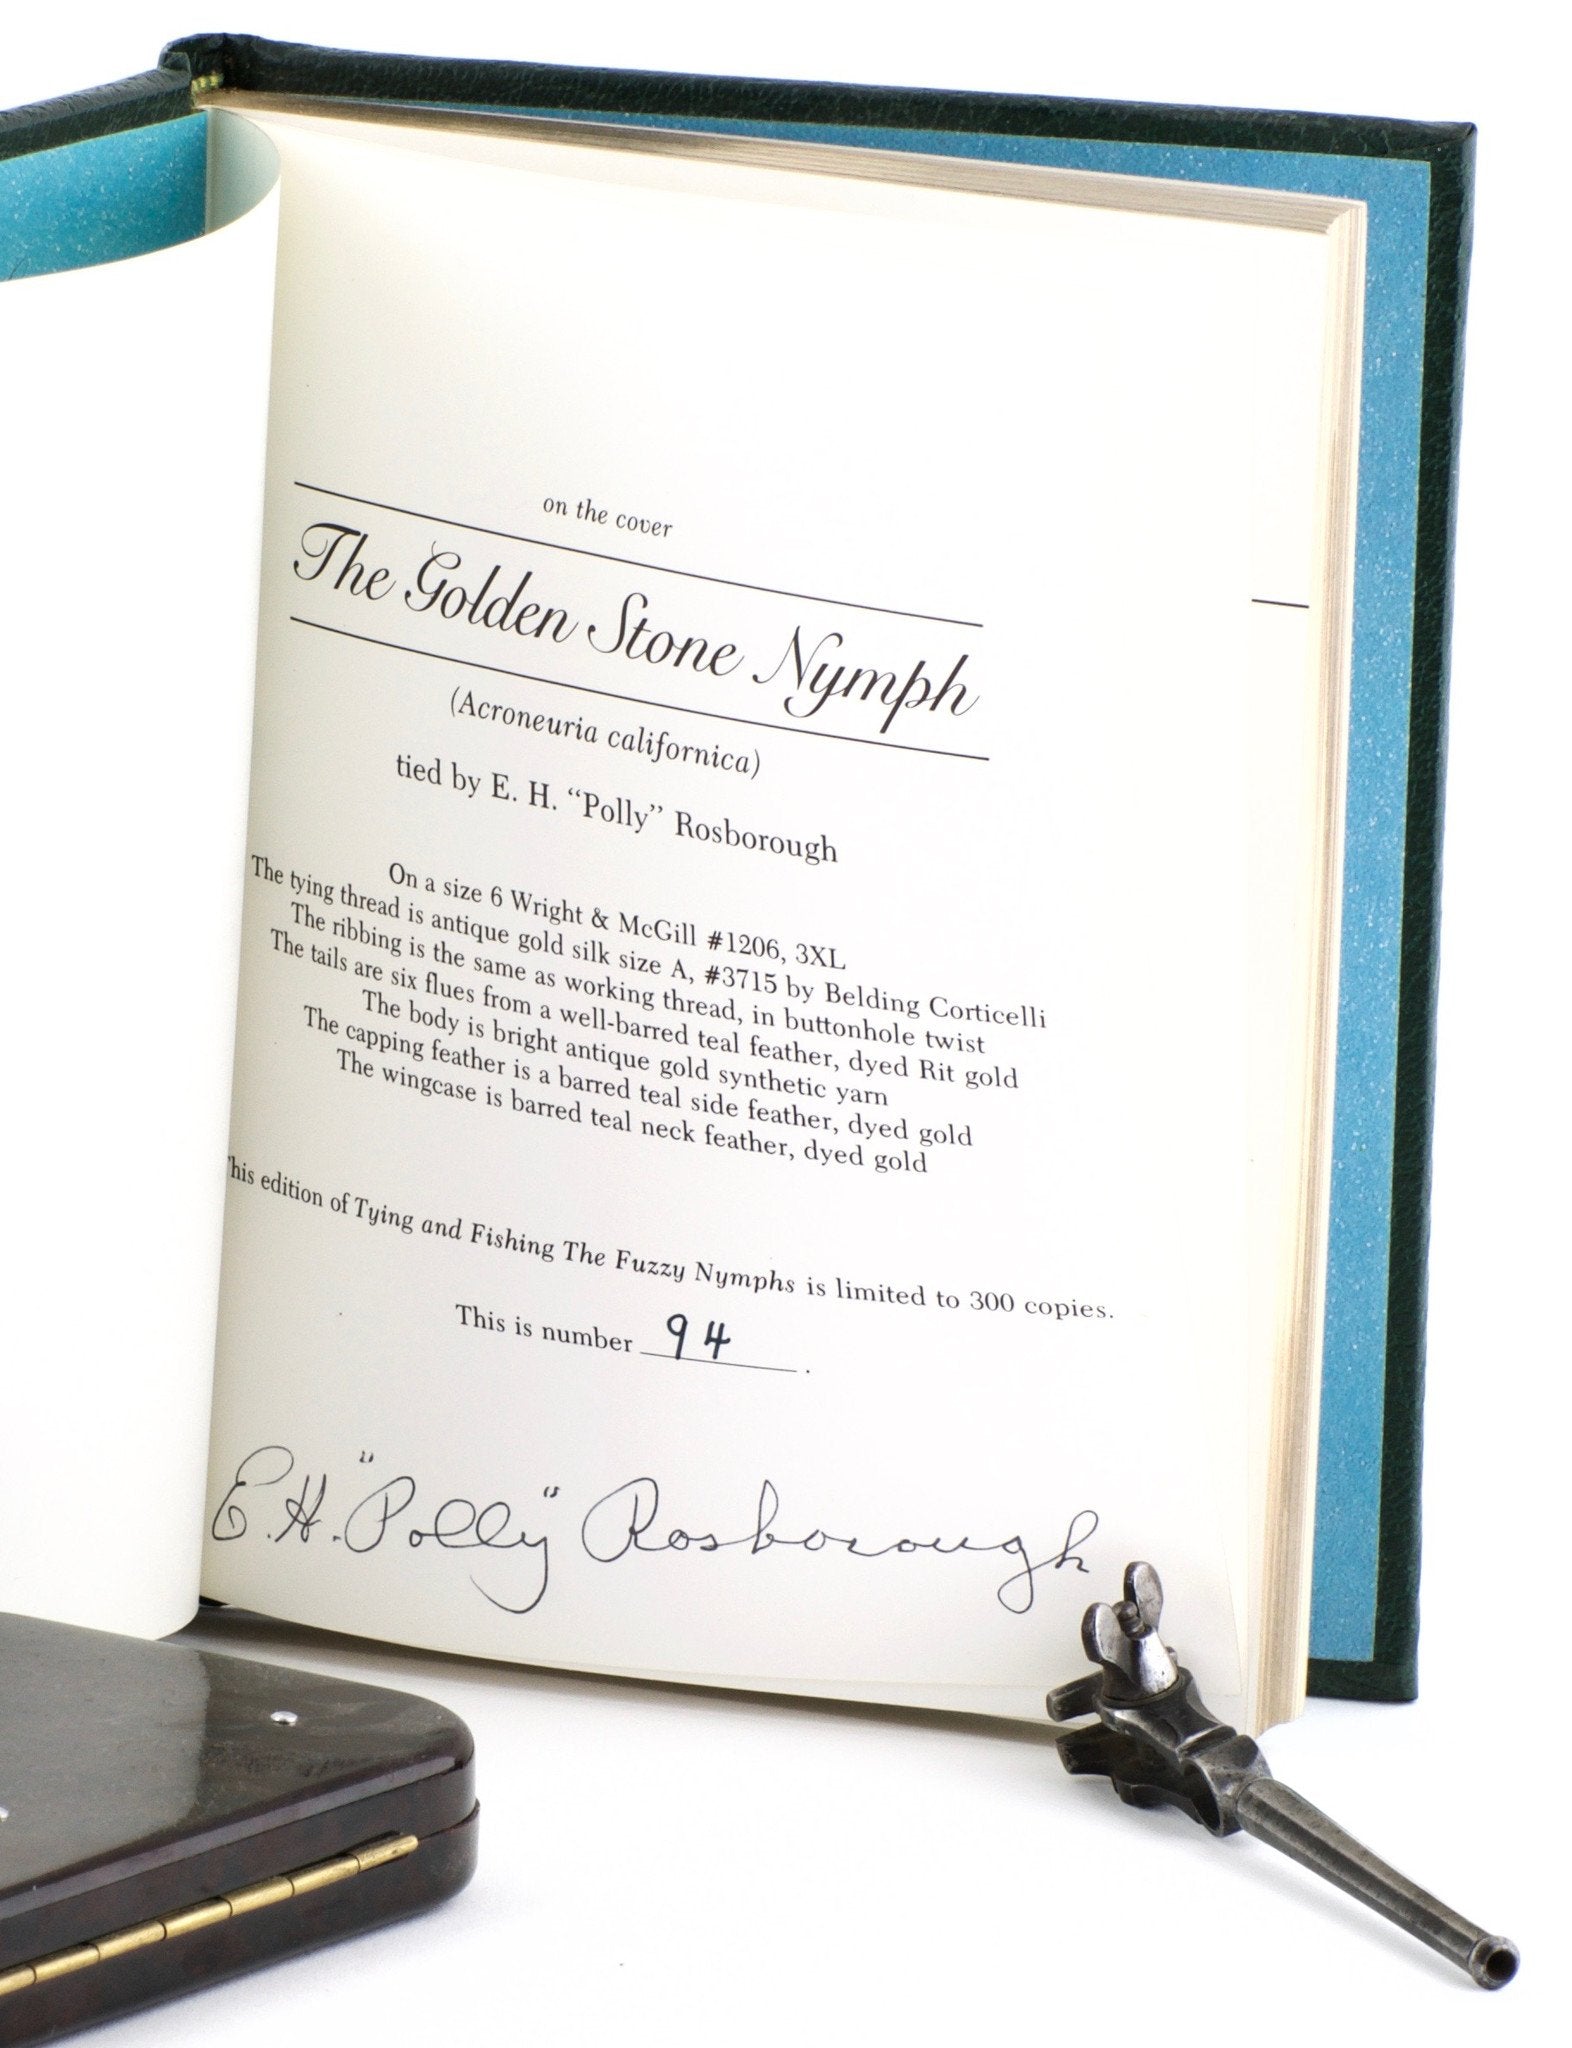 on the cover
The Golden Stone Nymph
(Acroneuria californica)
tied by E. H. “Polly” Rosborough
On a size 6 Wright & McGill #1206, 3XL
The tying thread is antique gold silk size A, #3715 by Belding Corticelli
The ribbing is the same as working thread, in buttonhole twist
The tails are six flues from a well-barred teal feather, dyed Rit gold
The body is bright antique gold synthetic yarn
The capping feather is a barred teal side feather, dyed gold
The wingcase is barred teal neck feather, dyed gold
This edition of Tying and Fishing The Fuzzy Nymphs is limited to 300 copies.
This is number 94.
E. H. "Polly" Rosborough